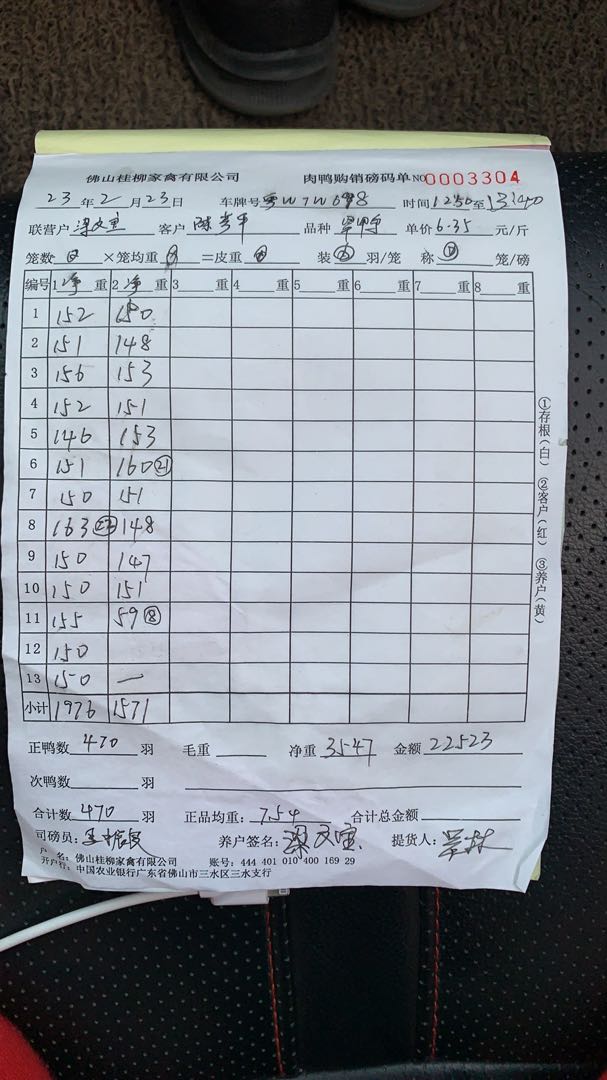 佛山桂柳家禽有限公司 肉鸭购销磅码单 NO 0003304
23年2月23日 车牌号 时间1250至1340
联营户梁文宝 客户陈 品种 单价6.35元/斤
笼数 ×笼均重 =皮重 装 羽/笼 称 笼/磅
编号 1净重 2净重 3 重 4 重 5 重 6 重 7 重 8 重
1 152 150
2 151 148
3 156 153
4 152 151
5 146 153
6 151 160㉑
7 150 151
8 163 148
9 150 147
10 150 151
11 155 59⑧
12 150
13 150 —
小计 1976 1571
正鸭数470羽 毛重 净重3547 金额22523
次鸭数 羽
合计数470羽 正品均重:7.54 合计总金额
司磅员: 养户签名:梁文宝 提货人:
户 名:佛山桂柳家禽有限公司 账号:444 401 010 400 169 29
开户行:中国农业银行广东省佛山市三水区三水支行
①存根(白) ②客户(红) ③养户(黄)